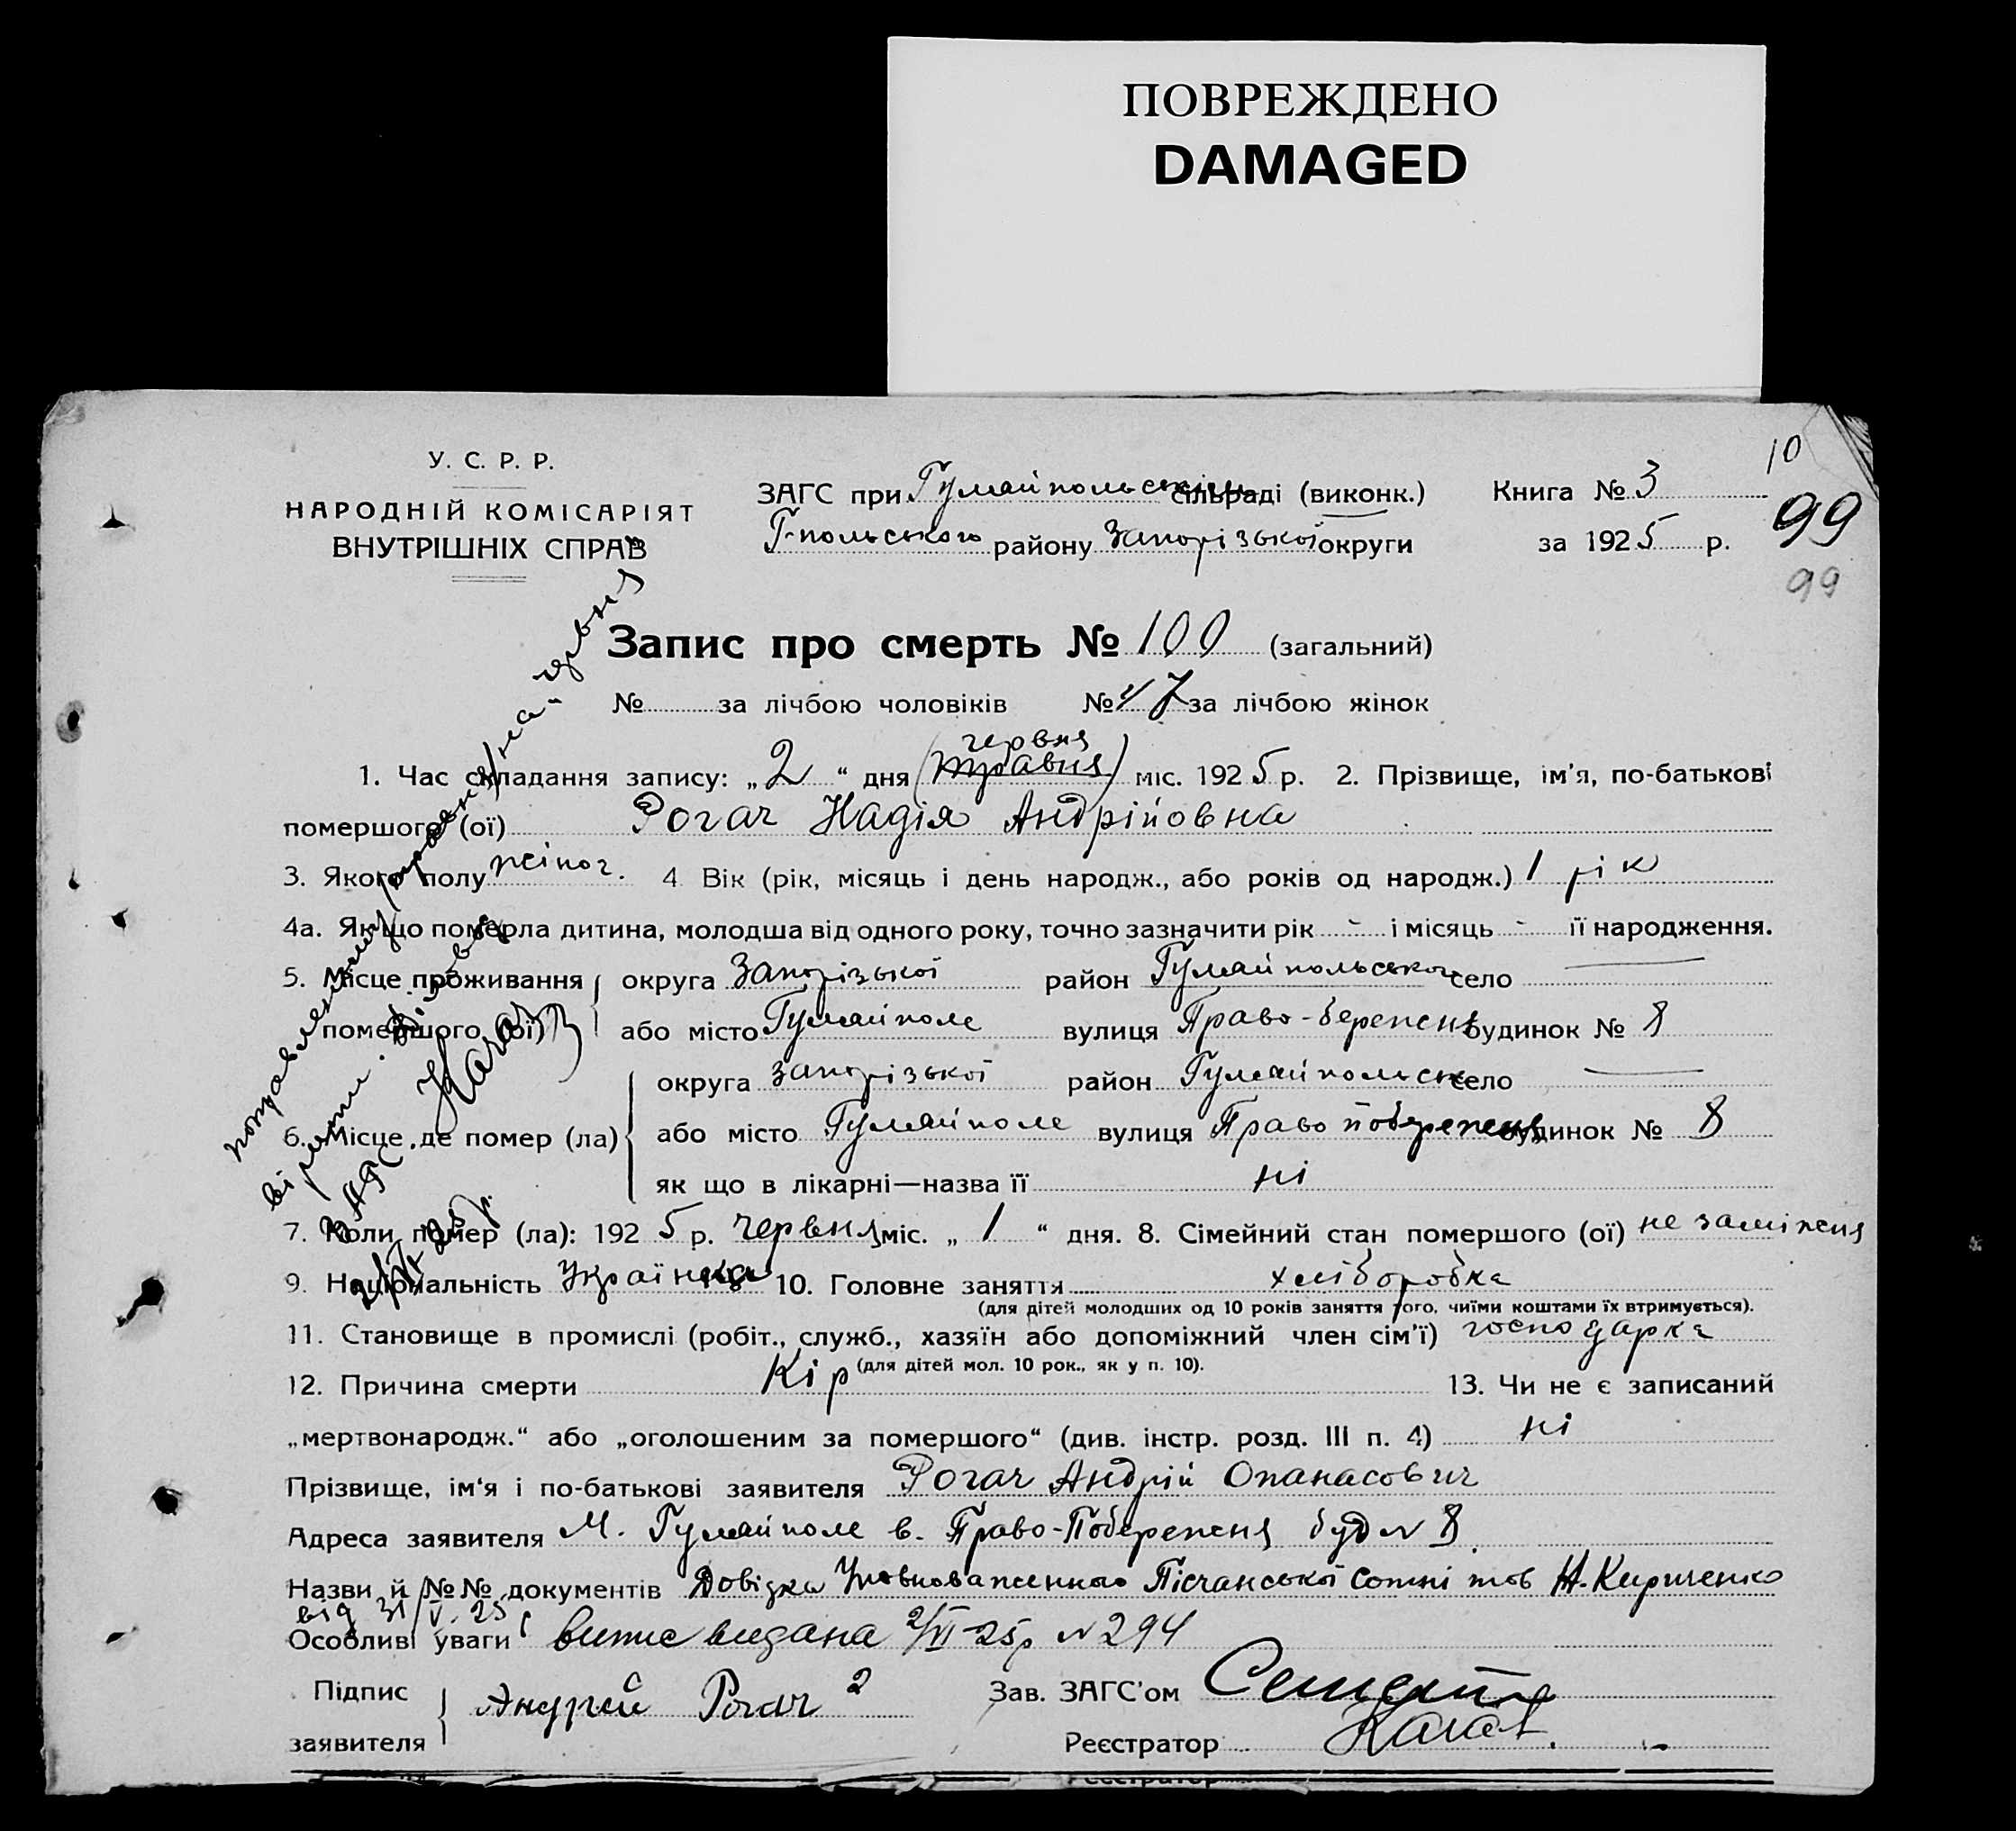 ПОВРЕЖДЕНО
DAMAGED
10
У. С. Р. Р.
НАРОДНІЙ КОМІСАРІЯТ
ВНУТРІШНІХ СПРАВ
ЗАГС при Гуляйпольськім сільраді (виконк.) Книга № 3
Г-польського району Запорізької округи за 1925 р.
99
99
Запис про смерть № 100 (загальний)
№ за лічбою чоловіків № 47 за лічбою жінок
червня
1. Час складання запису: „2“ дня (травня) міс. 1925 р. 2. Прізвище, ім'я, по-батькові
помершого (ої) Рогач Надія Андрійовна
3. Якого полу жіноч. 4 Вік (рік, місяць і день народж., або років од народж.) 1 рік
4а. Якщо померла дитина, молодша від одного року, точно зазначити рік - і місяць - її народження.
5. Місце проживання округа Запорізької район Гуляйпольського село —
помершого (ої) або місто Гуляйполе вулиця Право-бережня будинок № 8
округа Запорізької район Гуляйпольськ село —
6. Місце, де помер (ла) або місто Гуляйполе вулиця Право побережня будинок № 8
як що в лікарні—назва її ні
7. Коли помер (ла): 1925 р. червня міс. „1“ дня. 8. Сімейний стан помершого (ої) не заміжня
9. Національність Українка 10. Головне заняття хліборобка
(для дітей молодших од 10 років заняття того, чиїми коштами їх втримується).
11. Становище в промислі (робіт., служб., хазяїн або допоміжний член сім'ї) господарка
(для дітей мол. 10 рок., як у п. 10).
12. Причина смерти Кір 13. Чи не є записаний
„мертвонародж.“ або „оголошеним за помершого“ (див. інстр. розд. III п. 4) ні
Прізвище, ім'я і по-батькові заявителя Рогач Андрій Опанасович
Адреса заявителя М. Гуляйполе в. Право-Побережня буд № 8
Назви й №№ документів Довідка Уповноваженного Пісчанської сотні тов Н. Кириченко
від 31/V. 25
Особливі уваги випис видана 2/VI-25р № 294
Підпис заявителя Андрей Рогач
Зав. ЗАГС'ом
Реєстратор
поправленному травня/на червня
вірити
ЗАГС
2/VI 25 р.